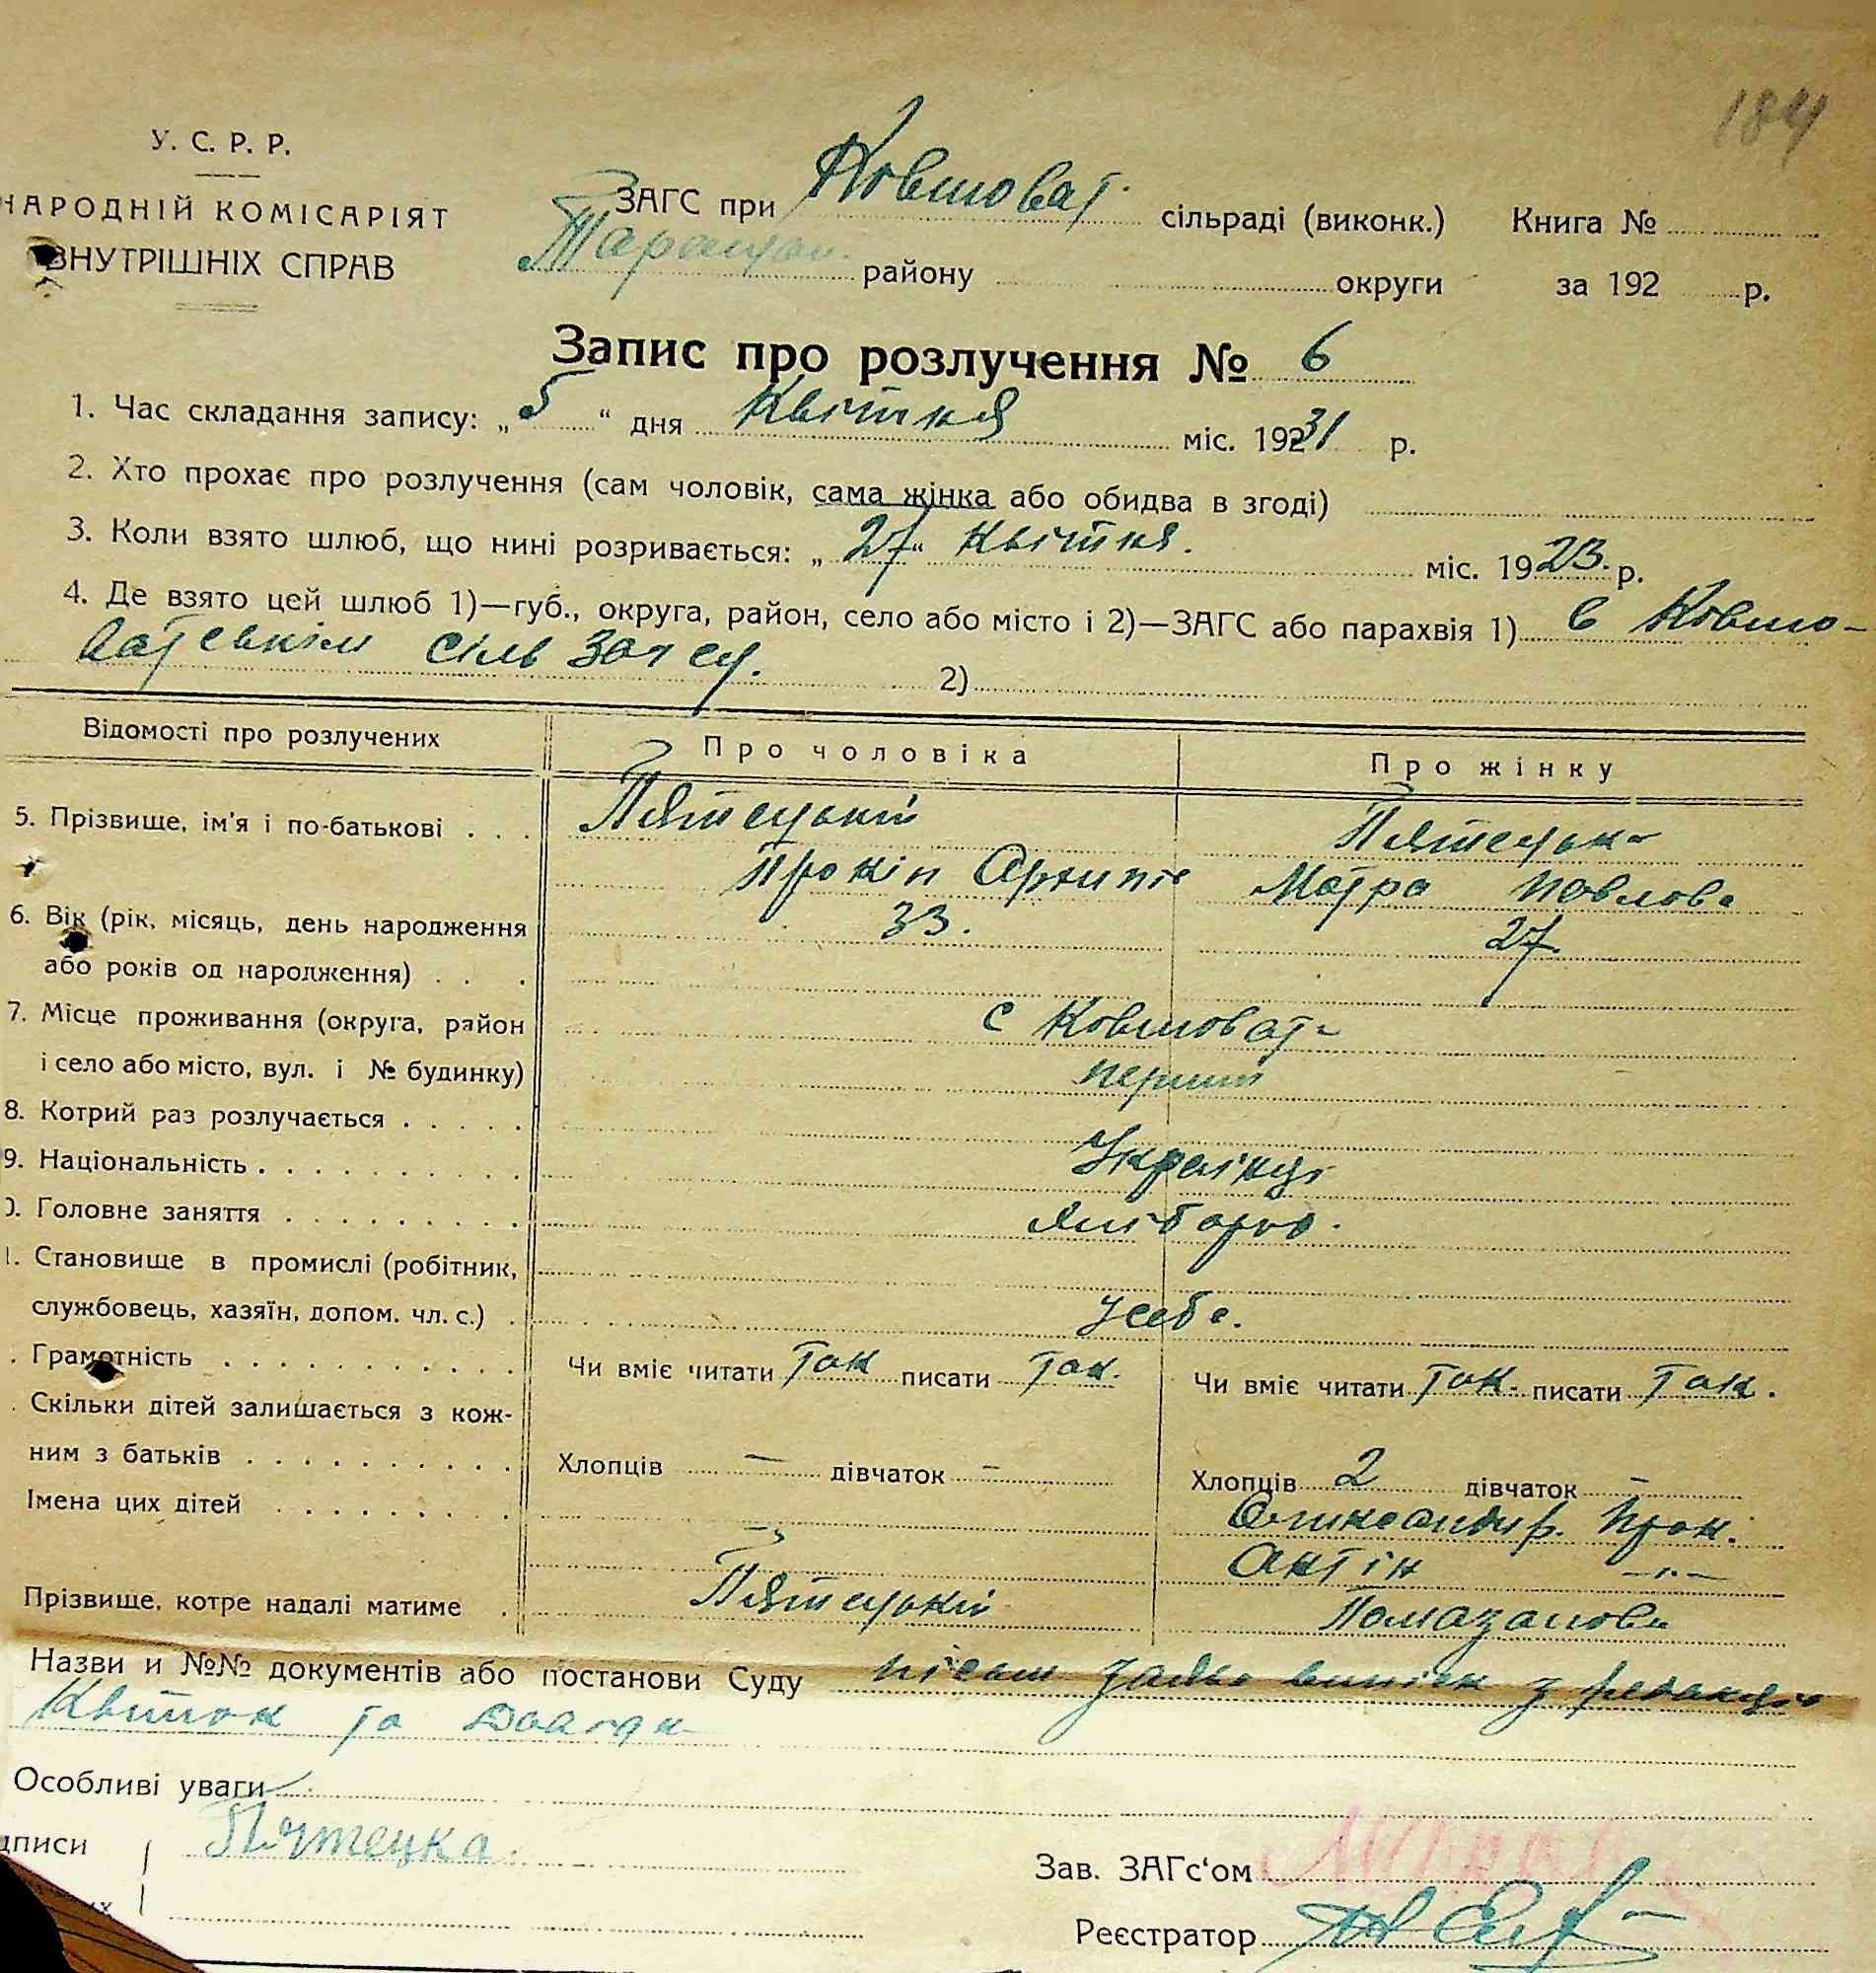 184
У. С. Р. Р.
НАРОДНІЙ КОМІСАРІЯТ
ВНУТРІШНІХ СПРАВ
ЗАГС при Ковшоват. сільраді (виконк.) Книга №
Таращан. району округи за 192 р.
Запис про розлучення № 6
1. Час складання запису: „5“ дня Квітня міс. 19231 р.
2. Хто прохає про розлучення (сам чоловік, сама жінка або обидва в згоді)
3. Коли взято шлюб, що нині розривається: „27“ Квітня. міс. 1923. р.
4. Де взято цей шлюб 1)—губ., округа, район, село або місто і 2)—ЗАГС або парахвія 1) в Ковшо-
ватськім сіль загсу. 2)
Відомості про розлучених Про чоловіка Про жінку
5. Прізвище, ім'я і по-батькові . . . Пятецький Пятецька
Прокіп Архипів Мотра Павлова
6. Вік (рік, місяць, день народження 33. 27.
або років од народження) . . .
7. Місце проживання (округа, район с Ковшоват
і село або місто, вул. і № будинку) перший
8. Котрий раз розлучається . . . . .
9. Національність . . . . . . . . . . Українці
0. Головне заняття . . . . . . . . . хліборо.
1. Становище в промислі (робітник,
службовець, хазяїн, допом. чл. с.) . у себе.
. Грамотність . . . . . . . . . . . Чи вміє читати так писати так. Чи вміє читати так. писати так.
. Скільки дітей залишається з кож-
ним з батьків . . . . . . . . . . . Хлопців — дівчаток — Хлопців 2 дівчаток —
Імена цих дітей . . . . . . . . . Олександр. Прок.
Антін —„—
Прізвище, котре надалі матиме . Пятецький Помазанова
Назви и №№ документів або постанови Суду заява випіск з редакції
Квиток та
Особливі уваги
дписи Пятецка.
их
Зав. ЗАГс‘ом
Реєстратор